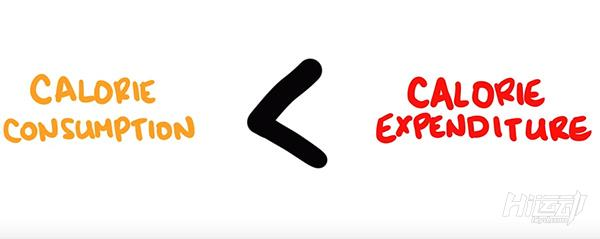 CALORIE
CONSUMPTION
<
CALORIE
EXPENDITURE
Hi运动!